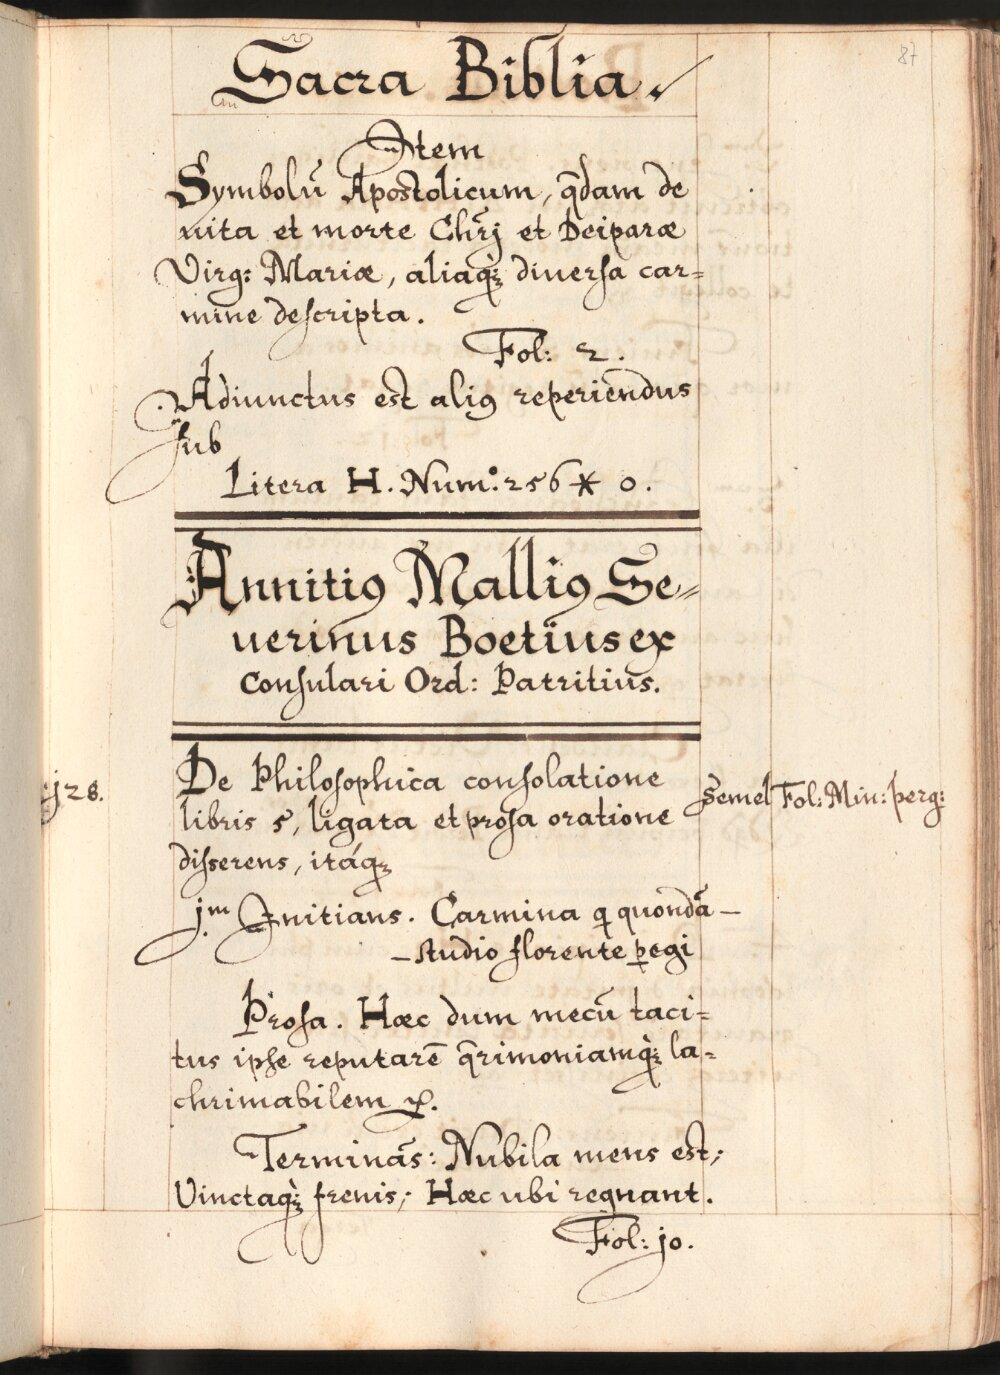 87
Sacra Biblia.
Item
Symbolū Apostolicum, q̄dam de
uita et morte Chr̄j et Deiparæ
Virg: Mariæ, aliaqꝫ diuersa car=
mine descripta.
Fol: 2.
Adiunctus est aliꝰ reperiendus
sub
Litera H. Num: 256 * 0.
Annitiꝰ Malliꝰ Se=
uerinus Boetius ex
Consulari Ord: Patritius.
De Philosophica consolatione
libris 5, ligata et prosa oratione
disserens, itáqꝫ
j28.
Semel Fol: Min: perg:
jm Initians. Carmina q̄ quondā –
– studio florente ꝑegi
Prosa. Hæc dum mecū taci=
tus ipse reputarē q̄rimoniamqꝫ la=
chrimabilem ꝛc.
Terminās: Nubila mens est;
Vinctaqꝫ frenis; Hæc ubi regnant.
Fol: jo.